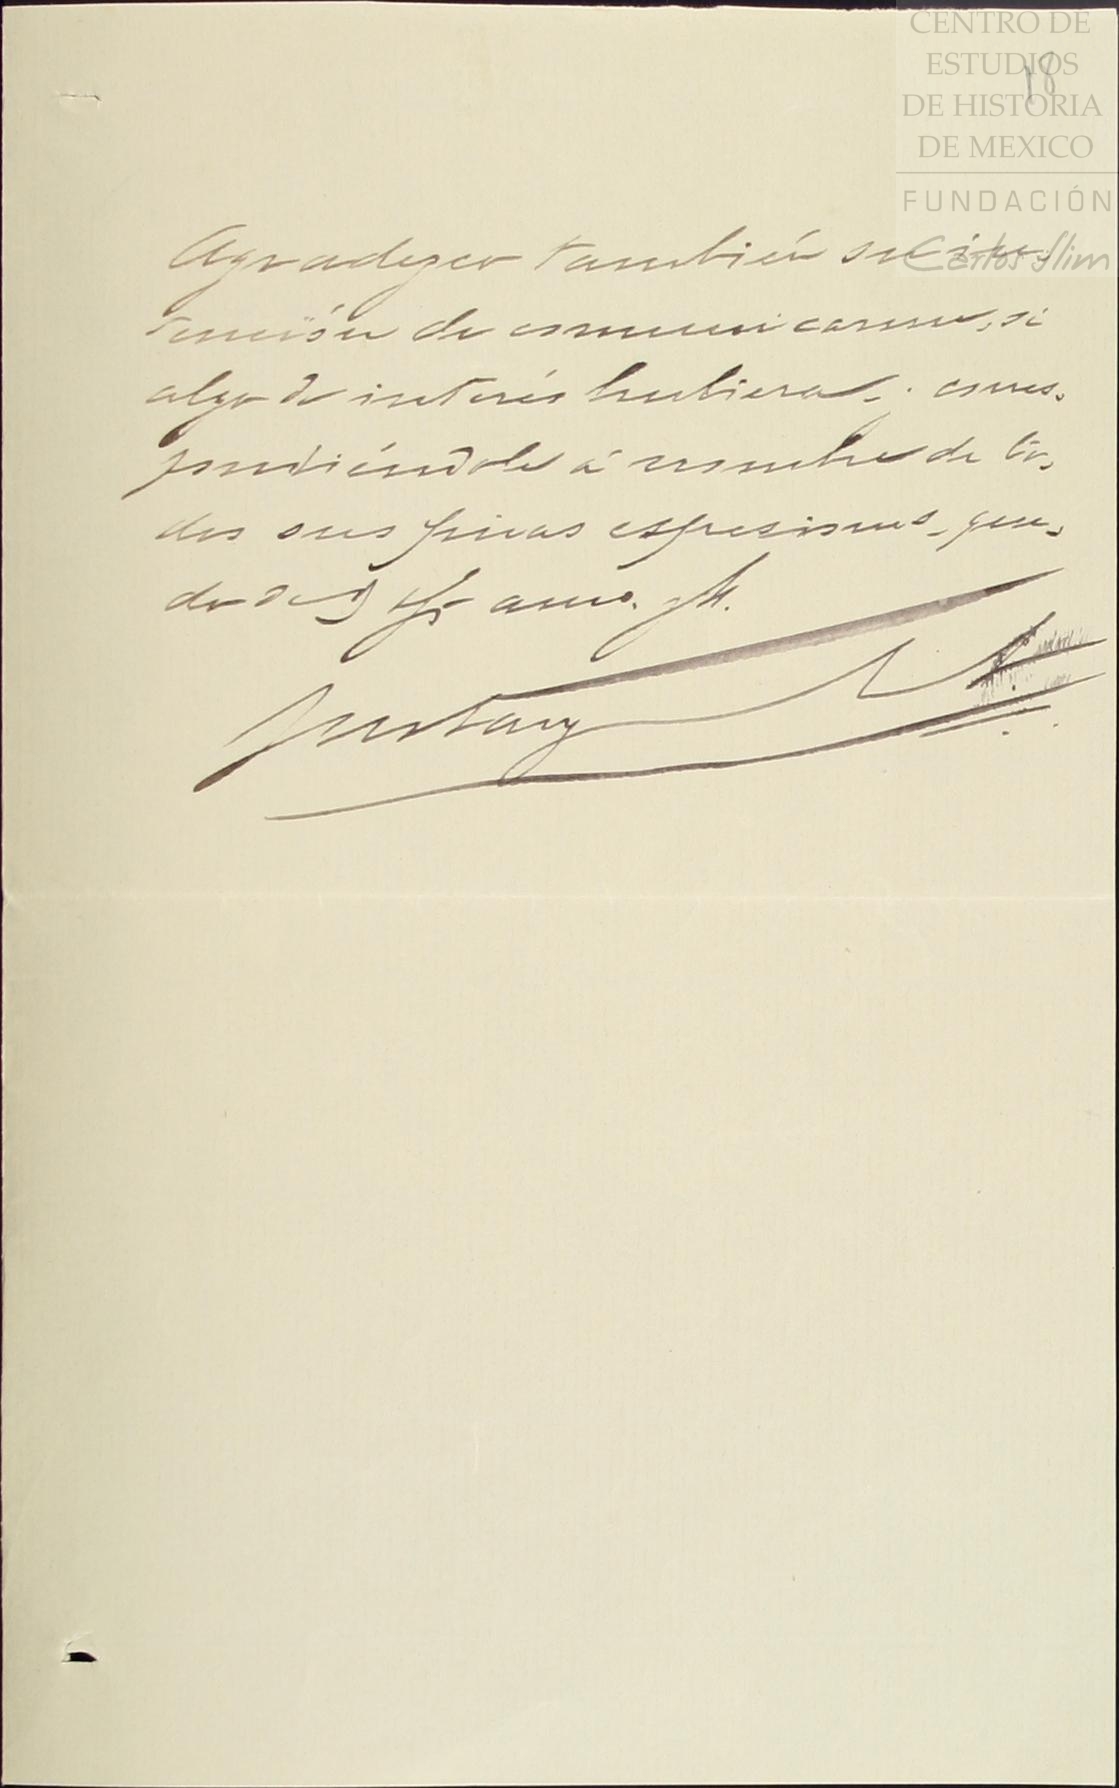 CENTRO DE
ESTUDIOS
DE HISTORIA
DE MEXICO
FUNDACIÓN
Carlos Slim
18
Agradezco también su in-
tención de comunicarme, si
algo de interés hubiera; corres-
pondiéndole á nombre de to-
dos sus finas espresiones, que-
do de U. afmo. amo.
Gustavo